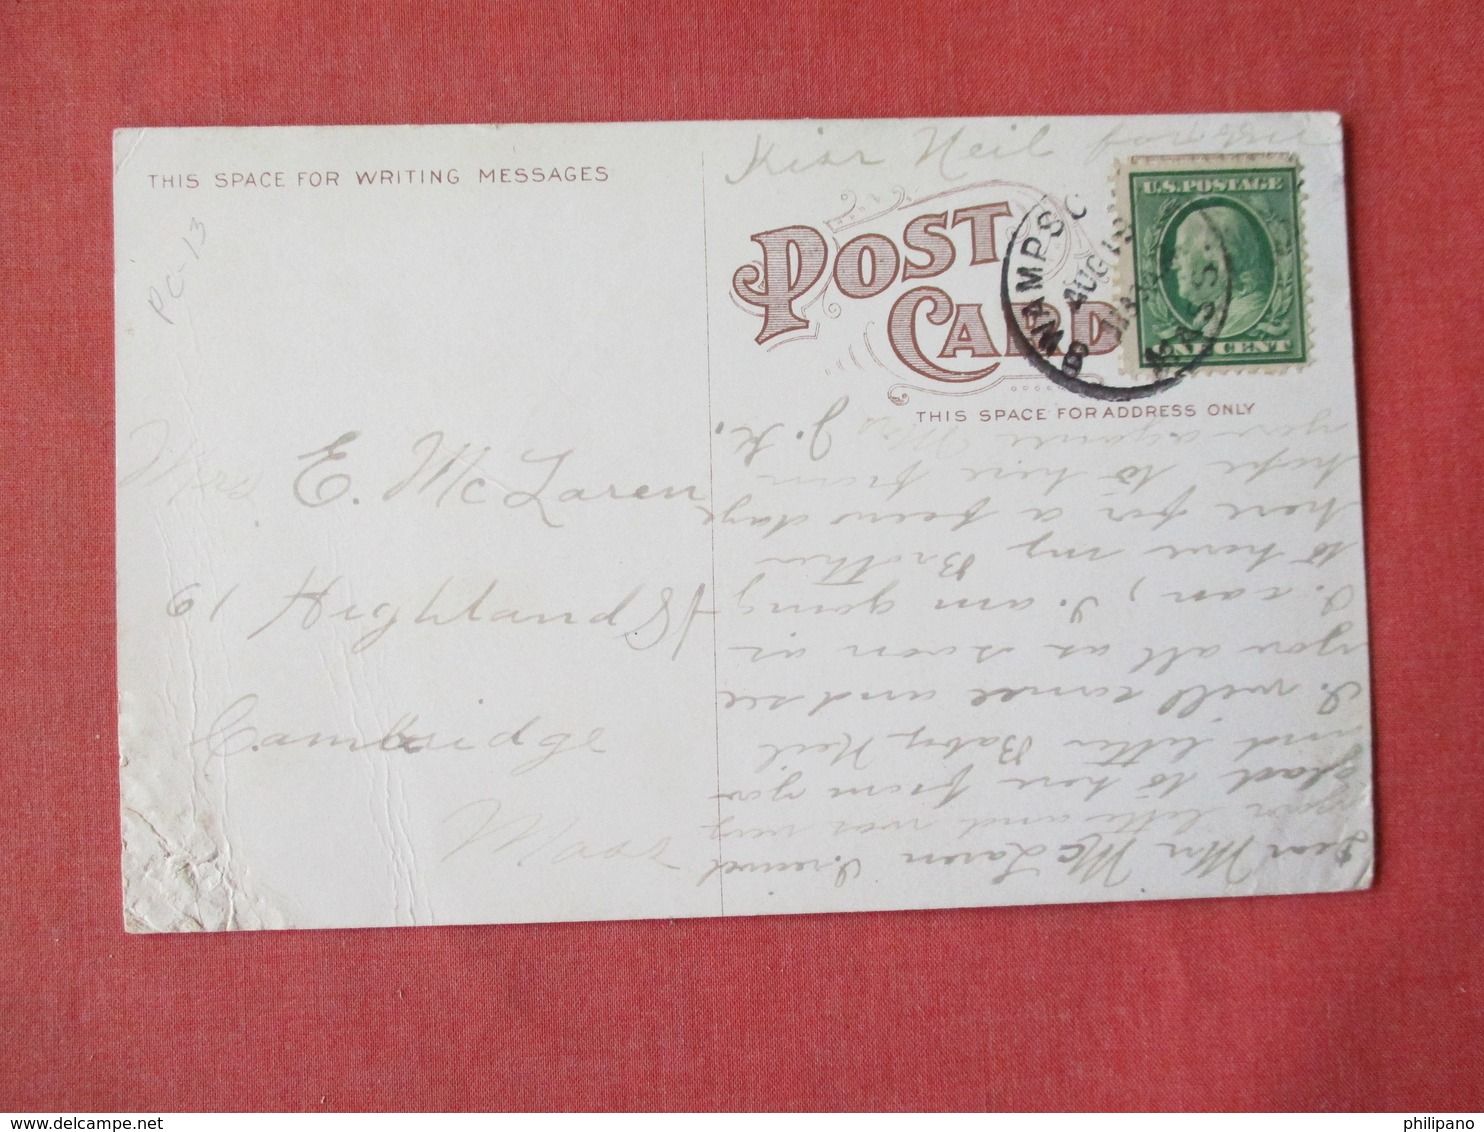 THIS SPACE FOR WRITING MESSAGES
PC-13
Mrs E. McLaren
61 Highland St
Cambridge
Mass
Kiss Neil for
POST
CARD
THIS SPACE FOR ADDRESS ONLY
U.S. POSTAGE
ONE CENT
AUG
MASS.
Dear Mrs McLaren I received
your letter and was very
glad to here from you
and little Baby Neil
I. will come and see
you all as soon as
I. can, I. am going
to have my Brother
here for a few days
hope to here from
you again Mrs J. K.
philipano